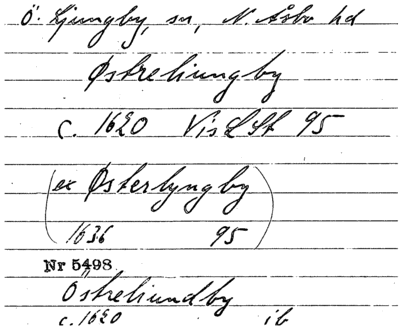 Ö. Ljungby, sn, N. Åsbo hd
Østreliungby
c. 1620 VisLSt 95
(ex Østerlyngby
1636 95)
Nr 5498
Östreliundby
c. 1620 ib